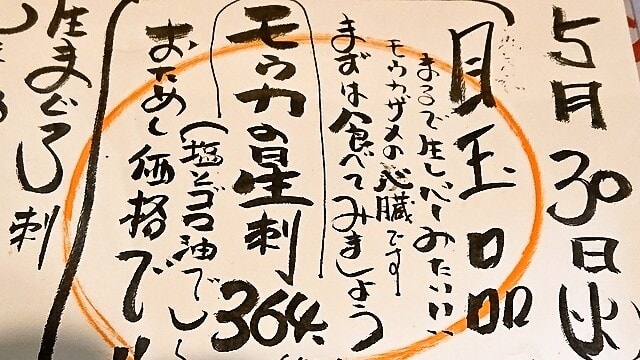 5月30日火
目玉品
まるで生レバーみたいい
モウカザメの心臓です
まずは食べてみましょう
モウカの星刺 364
(塩とゴマ油でし
おためし価格で!!
生まぐろ刺